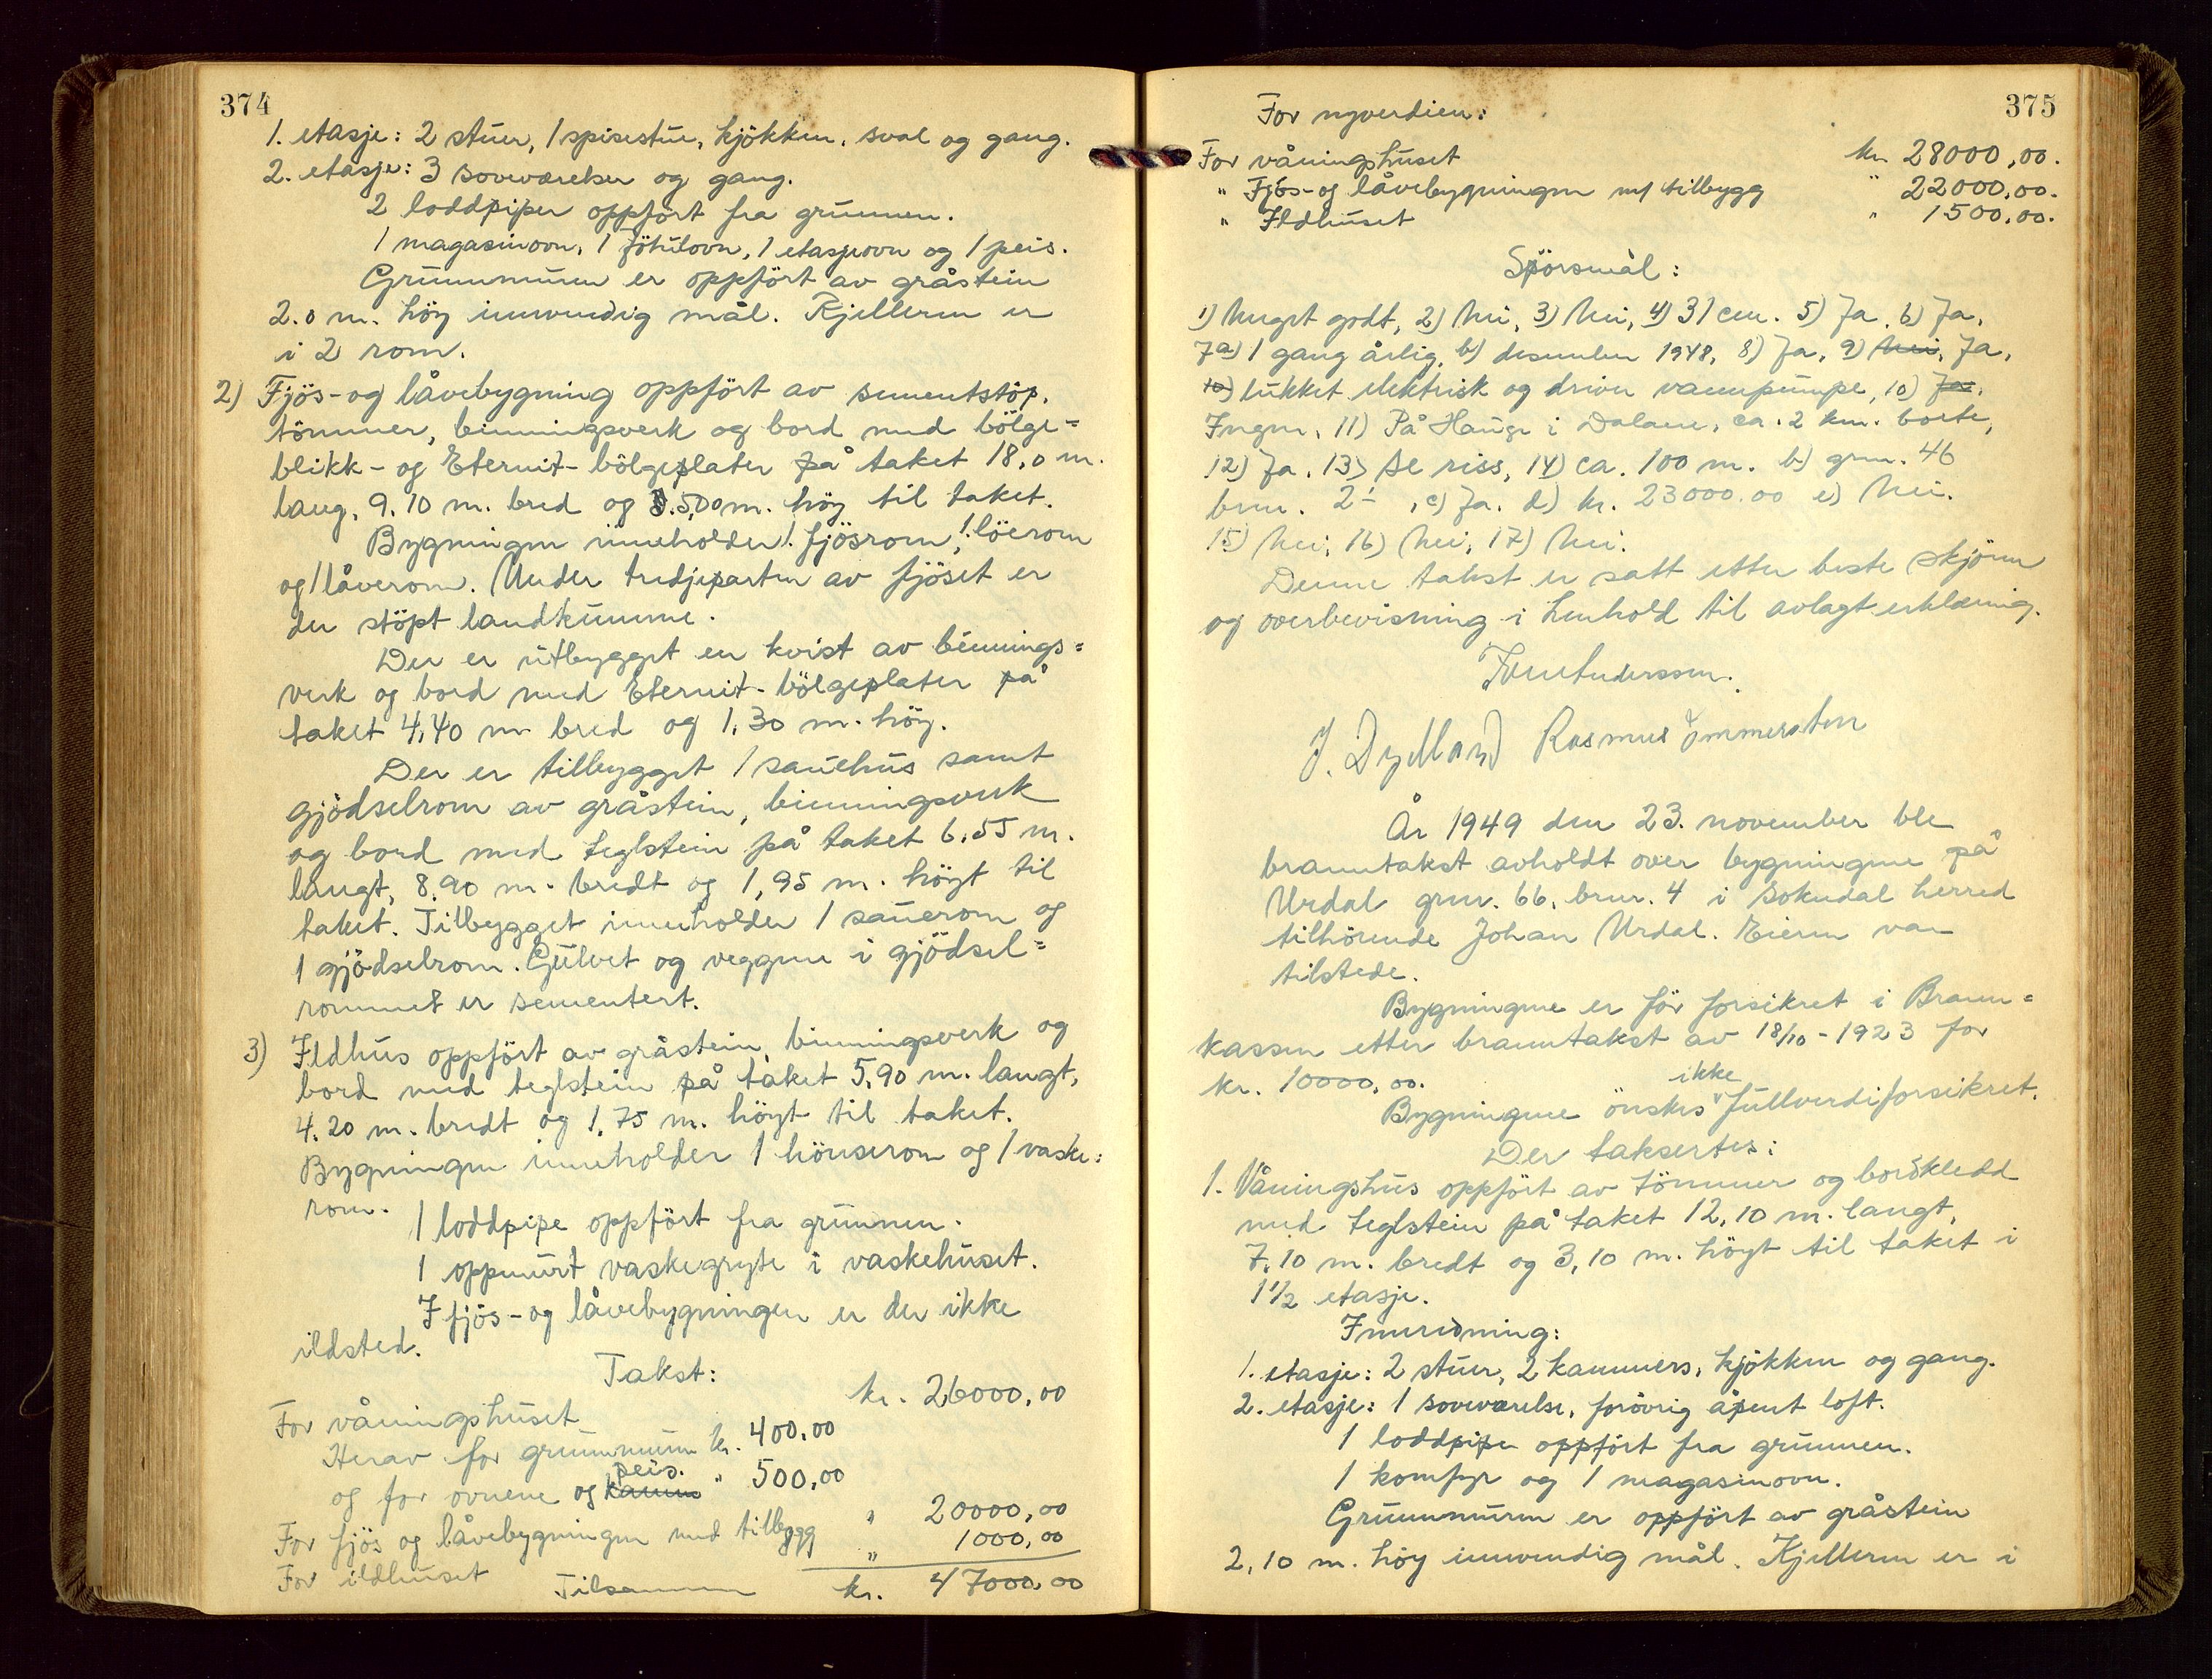 374
1. etasje: 2 stuer, 1 spisestue, kjökken, sval og gang.
2. etasje: 3 soveværelser og gang.
2 loddpiper oppfört fra grunnen.
1 magasinovn, 1 Jötulovn, 1 etasjeovn og 1 peis.
Grunnmuren er oppfört av gråstein
2.0 m. höy innvendig mål. Kjelleren er
i 2 rom.
2) Fjös- og låvebygning oppfört av sementstöp,
tömmer, binningsverk og bord med bölge=
blikk- og Eternit-bölgeplater på taket 18,0 m.
lang, 9.10 m. bred og 5,00 m. höy til taket.
Bygningen inneholder 1 fjösrom, 1 löerom
og 1 låverom. Under tredjeparten av fjöset er
der stöpt landkumme.
Der er utbygget en kvist av binnings=
verk og bord med Eternit-bölgeplater på
taket 4,40 m bred og 1,30 m. höy.
Der er tilbygget 1 sauehus samt
gjödselrom av gråstein, binningsverk
og bord med teglstein på taket 6,55 m.
langt, 8,90 m. bredt og 1,95 m. höyt til
taket. Tilbygget inneholder 1 sauerom og
1 gjödselrom. Gulvet og veggene i gjödsel=
rommet er sementert.
3) Ildhus oppfört av gråstein, binningsverk og
bord med teglstein på taket 5,90 m. langt,
4.20 m. bredt og 1,75 m. höyt til taket.
Bygningen inneholder 1 hönserom og 1 vaske=
rom.
1 loddpipe oppfört fra grunnen.
1 oppmurt vaskegryte i vaskehuset.
I fjös- og låvebygningen er der ikke
ildsted.
Takst:
For våningshuset kr. 26000,00
Herav for grunnmuren kr. 400,00
og for ovnene og kamin peis. " 500,00
For fjös og låvebygningen med tilbygg " 20000,00
For ildhuset " 1000,00
Tilsammen kr. 47000,00
375
For nyverdien:
For våningshuset kr 28000,00.
" Fjös- og låvebygningen m/ tilbygg " 22000,00.
" Ildhuset " 1500,00.
Spörsmål:
1) Meget godt, 2) Nei, 3) Nei, 4) 31 cm. 5) Ja, 6) Ja,
7a) 1 gang årlig, b) desember 1948, 8) Ja, 9) Nei, Ja,
10) lukket elektrisk og driver vannpumpe, 10) Ja.
Ingen, 11) På Hauge i Dalane, ca. 2 km. borte,
12) Ja, 13) Se riss, 14) ca. 100 m. b) gnr. 46
bnr. 2, c) Ja. d) kr. 23000.00 e) Nei.
15) Nei, 16) Nei, 17) Nei.
Denne takst er satt etter beste skjönn
og overbevisning i henhold til avlagt erklæring.
J. Dydland Rasmus Immerstein
År 1949 den 23. november ble
branntakst avholdt over bygningene på
Urdal gnr. 66, bnr. 4 i Sokndal herred
tilhörende Johan Urdal. Eieren var
tilstede.
Bygningene er för forsikret i Brann=
kassen etter branntakst av 18/10 - 1923 for
kr. 10000,00.
Bygningene önskes ikke fullverdiforsikret.
Der takseres:
1. Våningshus oppfört av tömmer og bordkledd
med teglstein på taket 12,10 m. langt,
7,10 m. bredt og 3,10 m. höyt til taket i
1 1/2 etasje.
Innredning:
1. etasje: 2 stuer, 2 kammers, kjökken og gang.
2. etasje: 1 soveværelse, forövrig åpent loft.
1 loddpipe oppfört fra grunnen.
1 komfyr og 1 magasinovn.
Grunnmuren er oppfört av gråstein
2,10 m. höy innvendig mål. Kjelleren er i